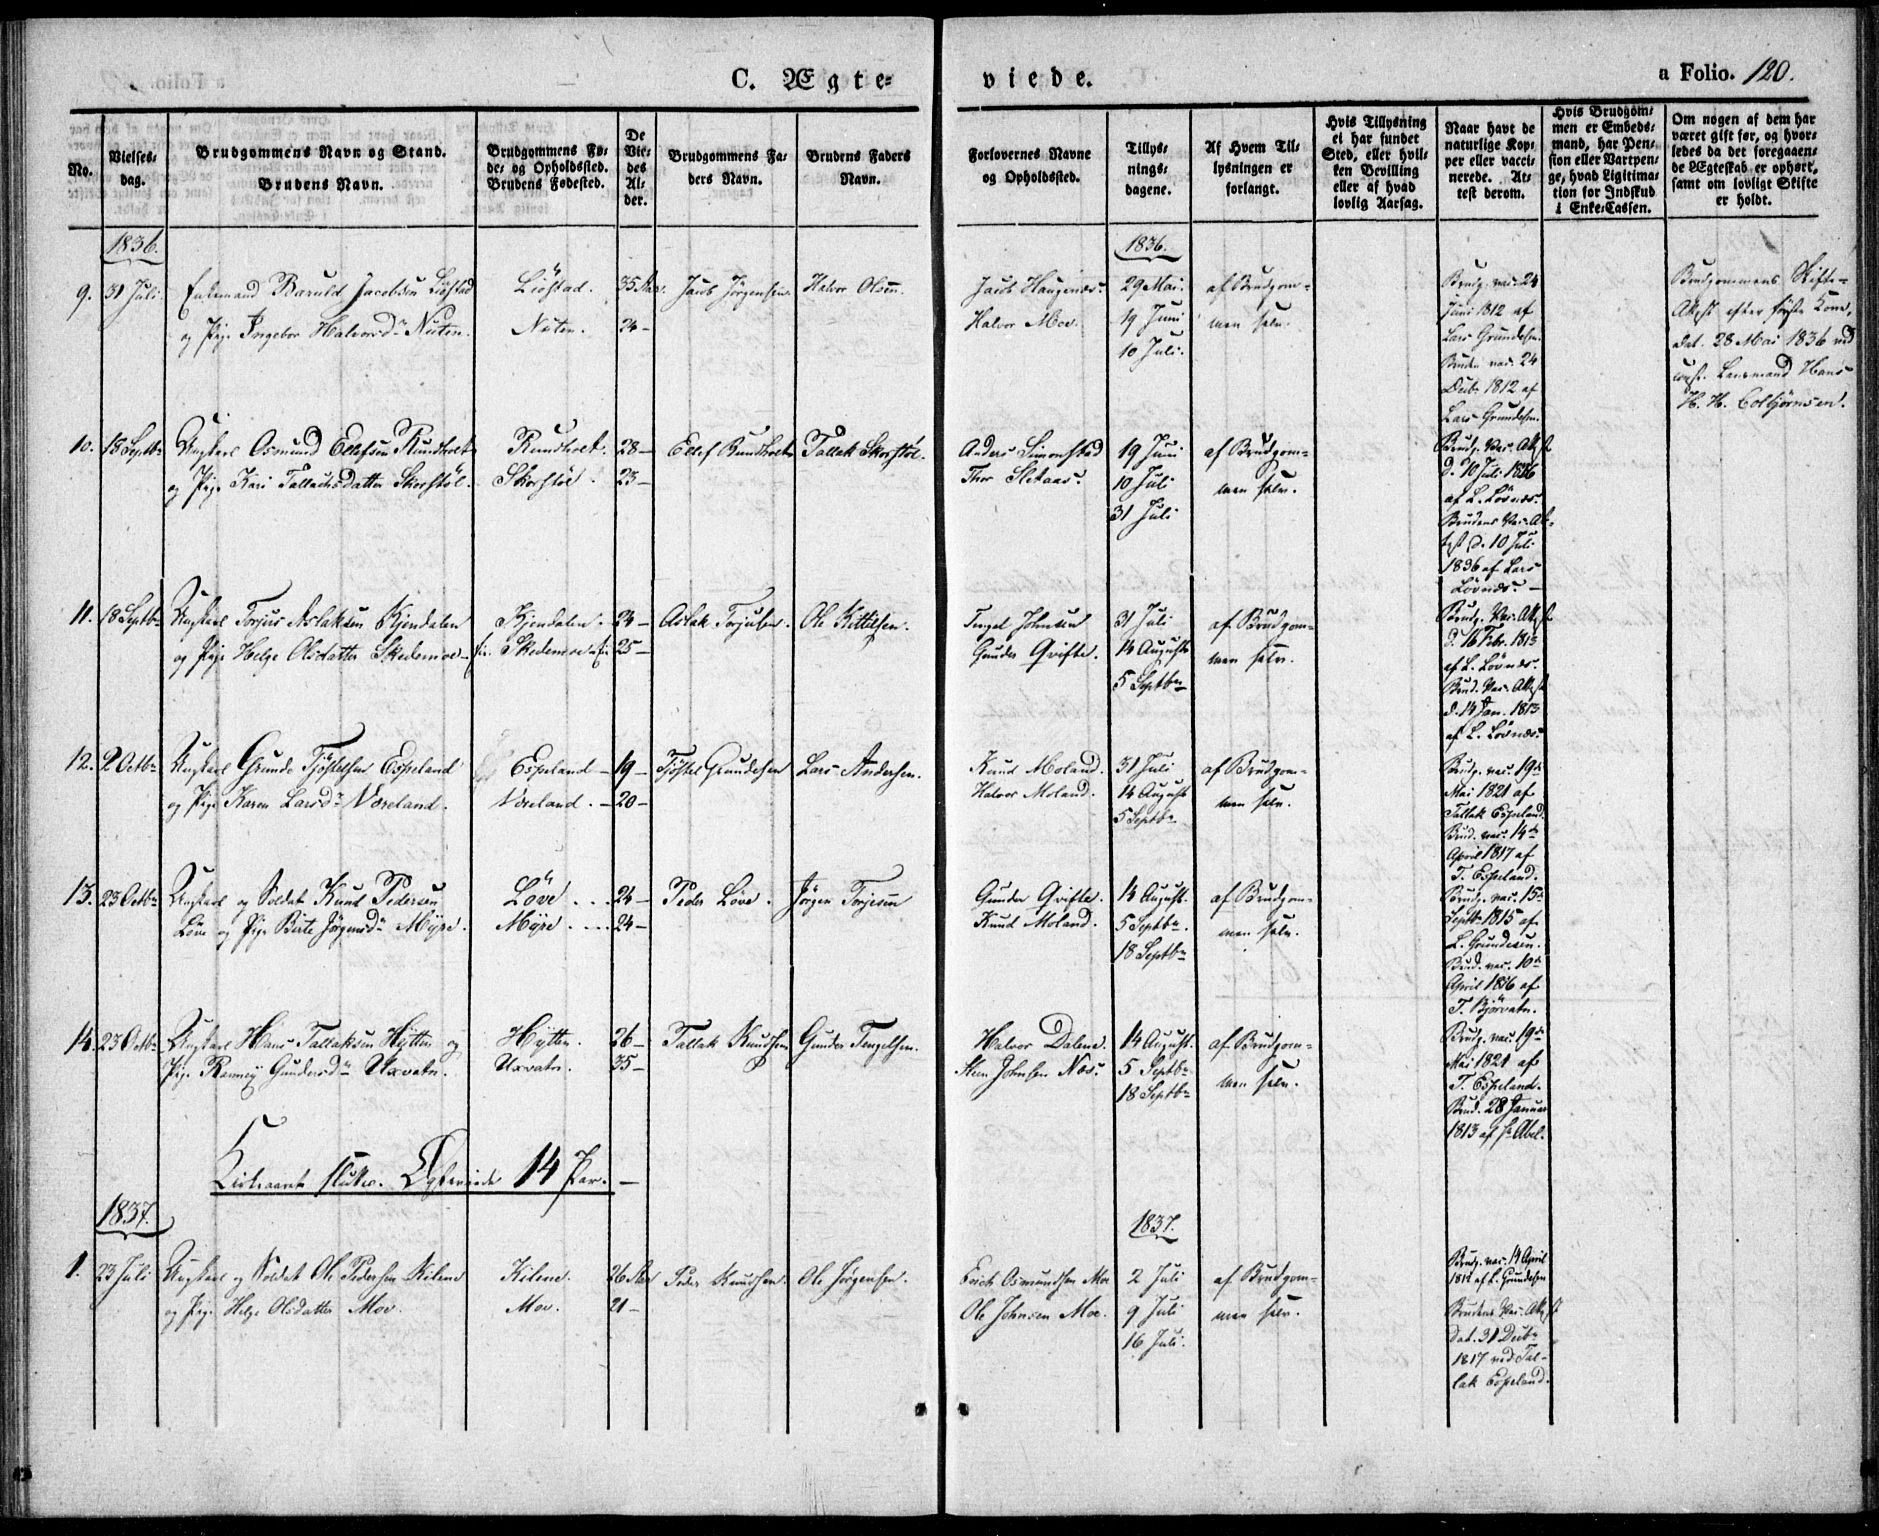 C. Ægte-
viede.
a Folio. 120.
No.
Vielses-
dag.
Brudgommens Navn og Stand.
Brudens Navn.
Brudgommens Fø-
de- og Opholdssted.
Brudens Fødested.
De
Vie-
des
Al-
der.
Brudgommens Fa-
ders Navn.
Brudens Faders
Navn.
Forlovernes Navne
og Opholdssted.
Tillys-
nings-
dagene.
Af Hvem Til-
lysningen er
forlangt.
Hvis Tillysning
ei har fundet
Sted, eller hvil-
ken Bevilling
eller af hvad
lovlig Aarsag.
Naar havt de
naturlige Kop-
per eller vacci-
nerede. At-
test derom.
Hvis Brudgom-
men er Embeds-
mand, har Pen-
sion eller Vartpen-
ge, hvad Ligitima-
tion for Indskud
i Enke-Cassen.
Om nogen af dem har
været gift før, og hvor-
ledes da det foregaaen-
de Ægteskab er ophørt,
samt om lovligt Skifte
er holdt.
1836.
1836.
9. 31 Juli. Enkemand Baruld Jacobsen Liøstad
og Pige Ingebor Halvorsd. Nuten.
Liøstad.
Nuten.
35 Aar.
24 -
Jacob Jörgensen.
Halvor Olsen.
Jacob Haugenæs.
Halvor Moe.
29 Mai.
19 Juni
10 Juli.
af Brudgom-
men selv.
Brudg. vac. 24
Juni 1812 af
Lars Grundesen.
Bruden vac. 24
Decbr. 1812 af
Lars Grundesen.
Brudgommens Skifte-
Attest efter første Kone,
dat. 28 Mai 1836 ved
const. Lensmand Hans
H. H. Colbjørnsen.
10. 18 Septbr. Ungkarl Osmund Ellefsen Rundholt
og Pige Kari Tallaksdatter Skorstöl.
Rundholt.
Skorstöl.
28 -
23 -
Ellef Rundholt.
Tallak Skorstöl.
Anders Simonstad
Thor Sletaas.
19 Juni
10 Juli
31 Juli
af Brudgom-
men selv.
Brudg. Vac. Attest
d. 10 Juli 1836
af L. Lövnæs.
Brudens Vac. At-
test d. 10 Juli
1836 af Lars
Lövnæs. -
11. 18 Septbr. Ungkarl Torjus Aslaksen Kjendalen
og Pige Helge Olsdatter Skedemoe
Kjendalen.
Skedemoe
24 -
25 -
Aslak Torjusen.
Ole Kittilsen.
Tengel Johnsen
Gunder Qvifte.
31 Juli
14 August
5 Septbr
af Brudgom-
men selv.
Brudg. Vac. Attest
d. 16 Febr. 1813
af L. Lövnæs.
Brud. Vac. Attest
d. 14 Jan. 1813
af L. Lövnæs.
12. 2 Octbr Ungkarl Grunde Tjöstelsen Espeland
og Pige Karen Larsd. Næreland.
Espeland
Næreland.
19 -
20 -
Tjöstel Grundesen
Lars Andersen.
Knud Moland.
Halvor Moland.
31 Juli
14 August
5 Septbr.
af Brudgom-
men selv.
Brudg. vac. 19de
Mai 1821 af
Tallak Espeland.
Brud. vac. 14de
April 1817 af
T. Espeland.
13. 23 Octbr Ungkarl og Soldat Knud Pedersen
Löve og Pige Birte Jörgensd. Myre.
Löve
Myre
24 -
24 -
Peder Löve.
Jörgen Torjesen
Gunder Qvifte.
Knud Moland.
14 August.
5 Septbr.
18 Septbr
af Brudgom-
men selv.
Brudg. vac. 15de
Septbr. 1815 af
L. Grundesen.
Brud. vac. 10de
April 1816 af
T. Björvatn.
14. 23 Octbr Ungkarl Hans Tallaksen Hytten og
Pige Ranneÿ Gundersd. Uxvatn.
Hytten.
Uxvatn.
26 -
35 -
Tallak Knudsen
Gunder Tengelsen.
Halvor Dalene.
Steen Johnsen Næs.
14 August.
5 Septbr
18 Septbr
af Brudgom-
men selv.
Brudg. vac. 19de
Mai 1821 af
T. Espeland.
Brud. 28 Januar
1813 af Hr. Abel.
Kirkeaaret sluttes. Ægteviede 14 Par. -
1837.
1837.
1. 23 Juli Ungkarl og Soldat Ole Pedersen Kilene
og Pige Helge Olsdatter Moe.
Kilene.
Moe.
26 Aar
21 -
Peder Knudsen.
Ole Jörgensen.
Erich Osmundsen Moe
Ole Johnsen Moe.
2 Juli
9 Juli
16 Juli.
af Brudgom-
men selv.
Brudg. vac. 14 April
1812 af L. Grundesen
Brudens Vac. Attest
dat. 31 Decbr
1817 ved Tal-
lak Espeland.